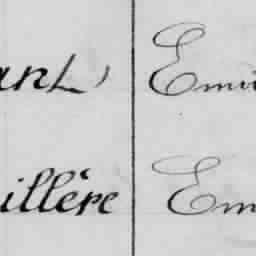 ant) Emi
illère Em